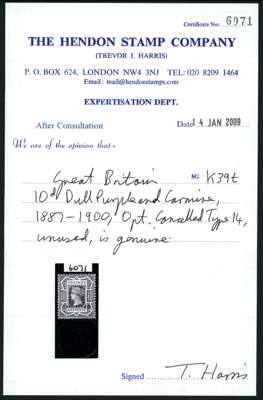 Certificate No: 6071
THE HENDON STAMP COMPANY
(TREVOR I. HARRIS)
P. O. BOX 624, LONDON NW4 3NJ TEL: 020 8209 1464
Email: mail@hendonstamps.com
EXPERTISATION DEPT.
After Consultation
Date 14 JAN 2009
We are of the opinion that -
Great Britain SG K39t
10d Dull Purple and Carmine,
1887-1900, Opt. Cancelled Type 14,
unused, is genuine.
6071
Signed T. Harris